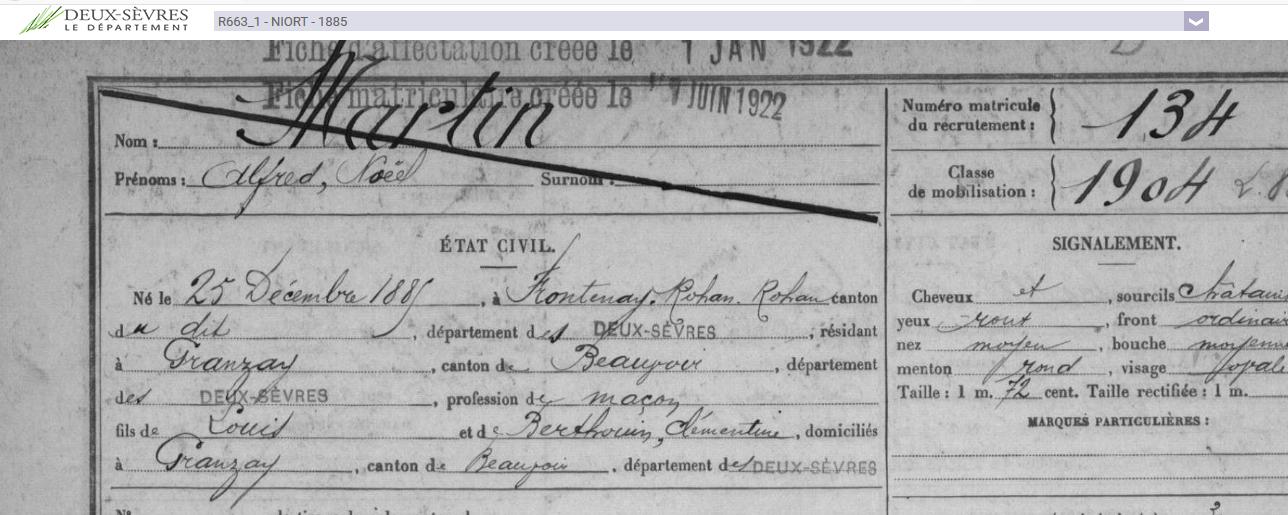 DEUX-SÈVRES
LE DÉPARTEMENT
R663_1 - NIORT - 1885
Fiche d'affectation créée le 1 JAN 1922
Fiche matriculaire créée le 7 JUIN 1922
Nom : Martin
Prénoms : Alfred, Noël Surnom :
Numéro matricule
du recrutement : 134
Classe
de mobilisation : 1904
ÉTAT CIVIL.
Né le 25 Décembre 1885, à Frontenay-Rohan-Rohan canton
du dit, département des DEUX-SÈVRES, résidant
à Granzay, canton de Beauvoir, département
des DEUX-SÈVRES, profession de maçon
fils de Louis et de Berthouin, Clémentine, domiciliés
à Granzay, canton de Beauvoir, département des DEUX-SÈVRES
SIGNALEMENT.
Cheveux et, sourcils
yeux roux, front
nez moyen, bouche
menton rond, visage
Taille : 1 m. 72 cent. Taille rectifiée : 1 m.
MARQUES PARTICULIÈRES :